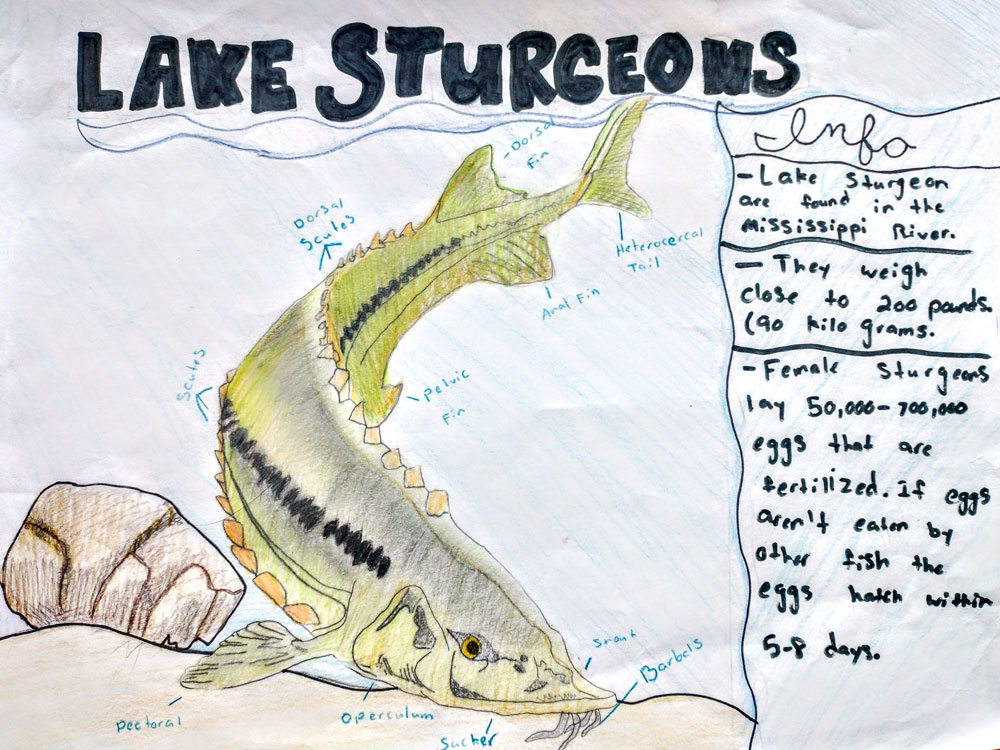 LAKE STURGEONS
Info
- Lake Sturgeon
are found in the
Mississippi River.
- They weigh
close to 200 pounds.
(90 kilo grams.
- Female Sturgeons
lay 50,000-700,000
eggs that are
fertilized. If eggs
aren't eaten by
other fish the
eggs hatch within
5-8 days.
Dorsal
Fin
Dorsal
Scutes
Heterocercal
Tail
Anal Fin
Scutes
Pelvic
Fin
Snout
Barbels
Pectoral
Operculum
Sucker